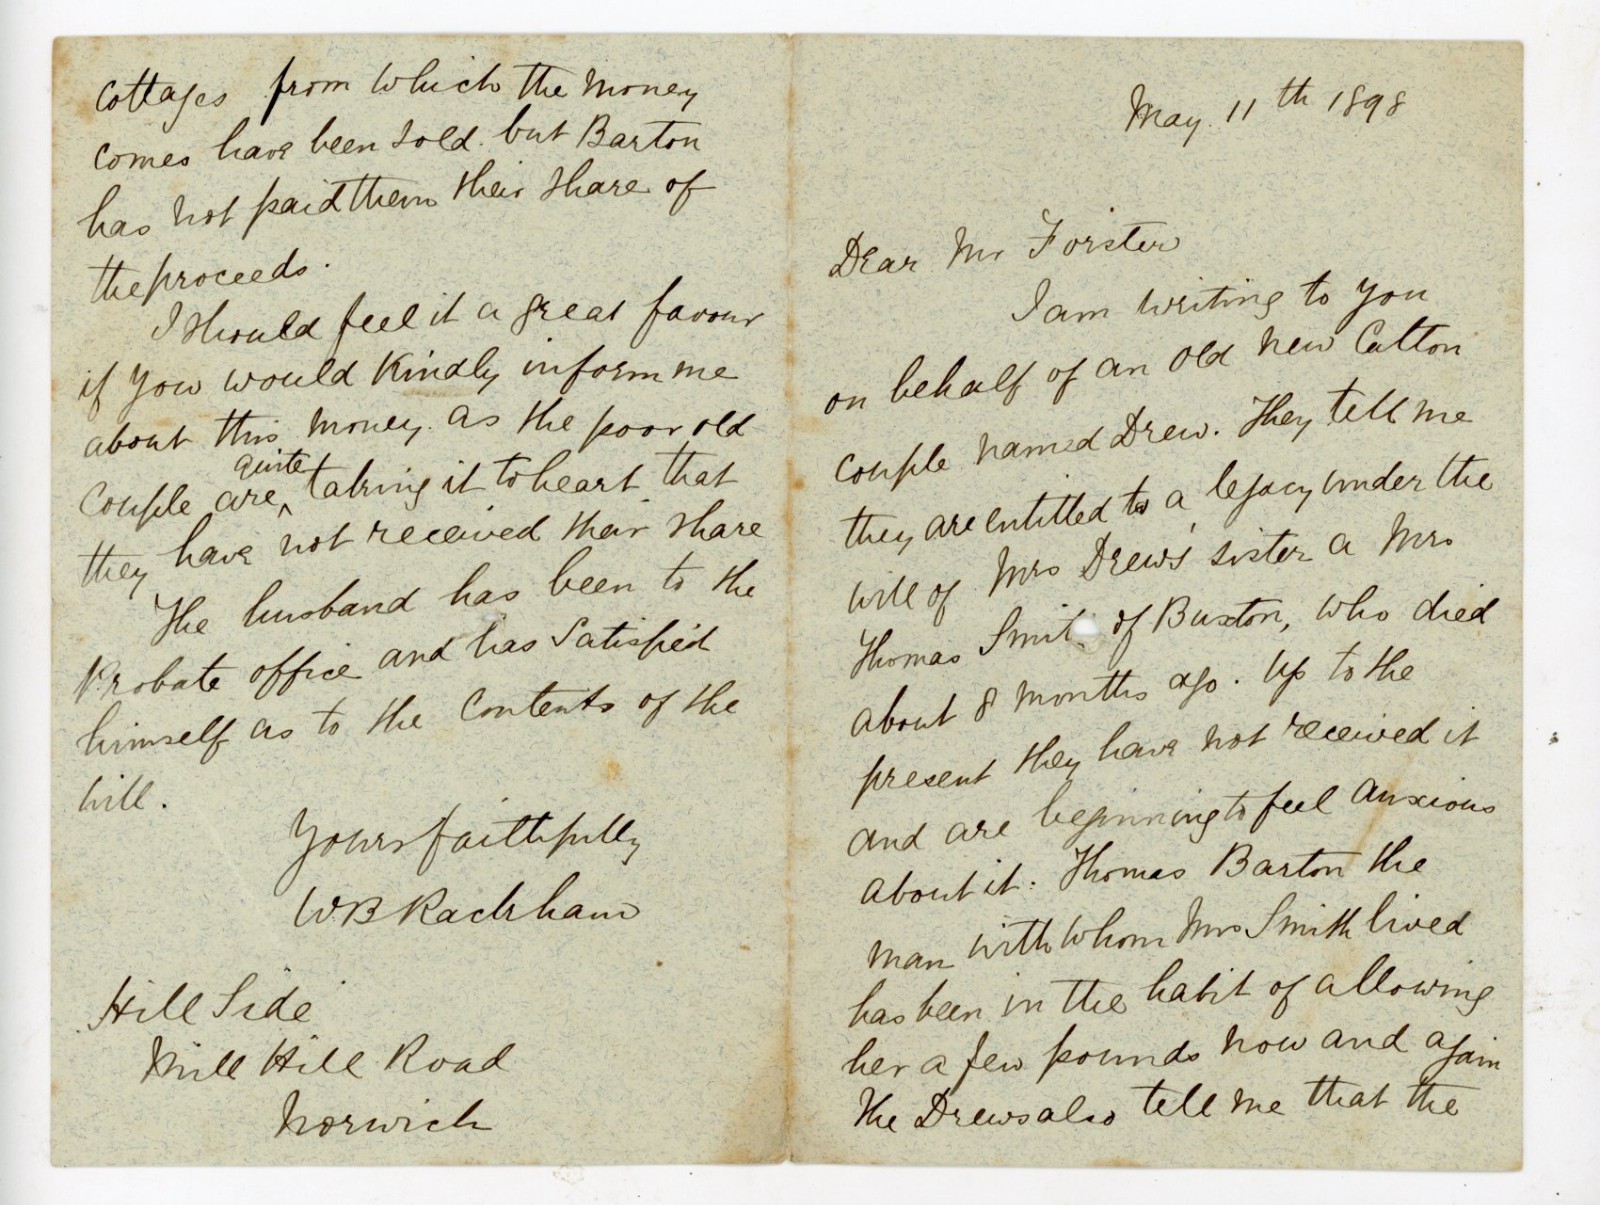 May 11th 1898
Dear Mr Forster
I am writing to you
on behalf of an old New Catton
couple named Drew. They tell me
they are entitled to a legacy under the
will of Mrs Drews' sister a Mrs
Thomas Smit of Buxton, who died
about 8 months ago. Up to the
present they have not received it
and are beginning to feel anxious
about it. Thomas Barton the
man with whom Mrs Smith lived
has been in the habit of allowing
her a few pounds now and again
The Drews also tell me that the
cottages from which the money
comes have been sold. but Barton
has not paid them their share of
the proceeds.
I should feel it a great favour
if you would kindly inform me
about this money. as the poor old
couple are quite taking it to heart that
they have not received their share
The husband has been to the
Probate office and has satisfied
himself as to the contents of the
will.
Yours faithfully
W B Rackham
Hill Side
Mill Hill Road
Norwich